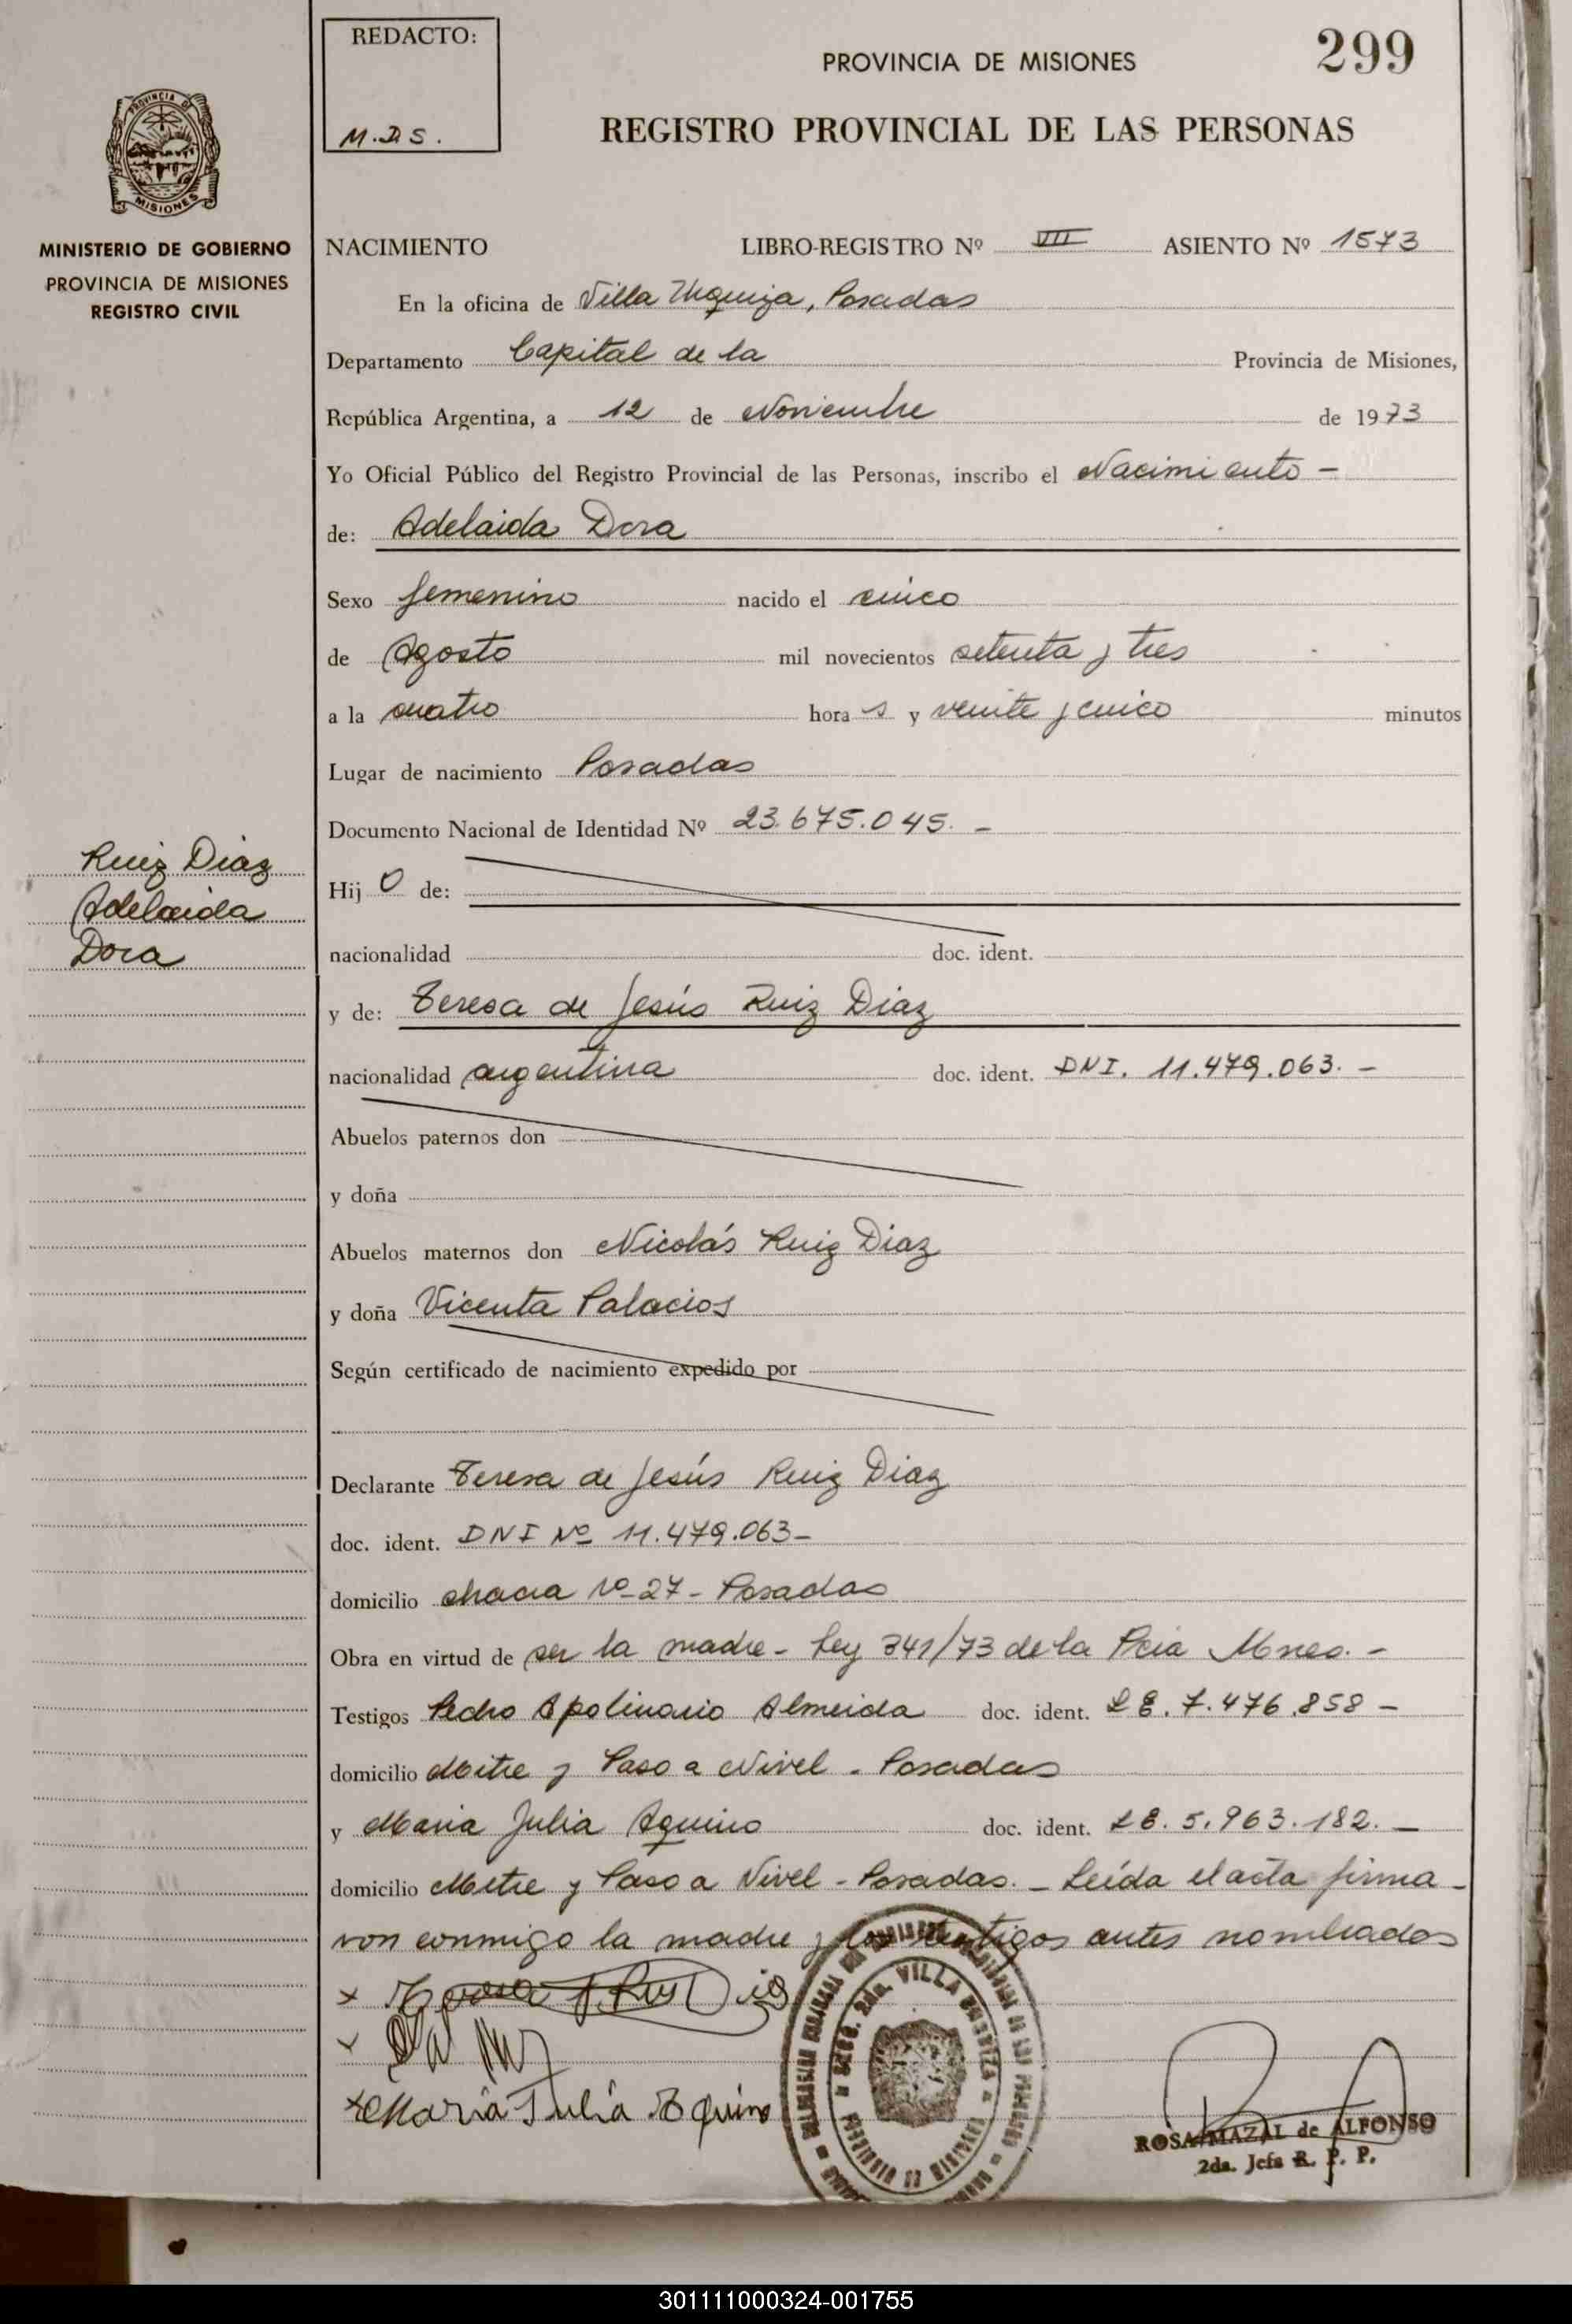 REDACTO:
M.D.S.
PROVINCIA DE MISIONES
299
REGISTRO PROVINCIAL DE LAS PERSONAS
PROVINCIA DE
MISIONES
MINISTERIO DE GOBIERNO
PROVINCIA DE MISIONES
REGISTRO CIVIL
NACIMIENTO LIBRO-REGISTRO Nº VII ASIENTO Nº 1573
En la oficina de Villa Urquiza, Posadas
Departamento Capital de la Provincia de Misiones,
República Argentina, a 12 de Noviembre de 1973
Yo Oficial Público del Registro Provincial de las Personas, inscribo el Nacimiento -
de: Adelaida Dora
Sexo femenino nacido el cinco
de Agosto mil novecientos setenta y tres
a la cuatro hora s y veinte y cinco minutos
Lugar de nacimiento Posadas
Documento Nacional de Identidad Nº 23.675.045. -
Ruiz Diaz
Adelaida
Dora
Hij O de:
nacionalidad doc. ident.
y de: Teresa de Jesús Ruiz Diaz
nacionalidad argentina doc. ident. DNI. 11.479.063. -
Abuelos paternos don
y doña
Abuelos maternos don Nicolás Ruiz Diaz
y doña Vicenta Palacios
Según certificado de nacimiento expedido por
Declarante Teresa de Jesús Ruiz Diaz
doc. ident. DNI Nº 11.479.063-
domicilio chacra Nº 27 - Posadas
Obra en virtud de ser la madre - Ley 341/73 de la Pcia Mnes. -
Testigos Pedro Apolinario Almeida doc. ident. LE. 7.476.858 -
domicilio Mitre y Paso a Nivel - Posadas
y Maria Julia Aquino doc. ident. LE. 5.963.182. -
domicilio Mitre y Paso a Nivel - Posadas. - Leída el acta firma-
ron conmigo la madre y los testigos antes nombrados
María Julia Aquino
VILLA URQUIZA
ROSA MAZAL de ALFONSO
2da. Jefa R. P. P.
301111000324-001755